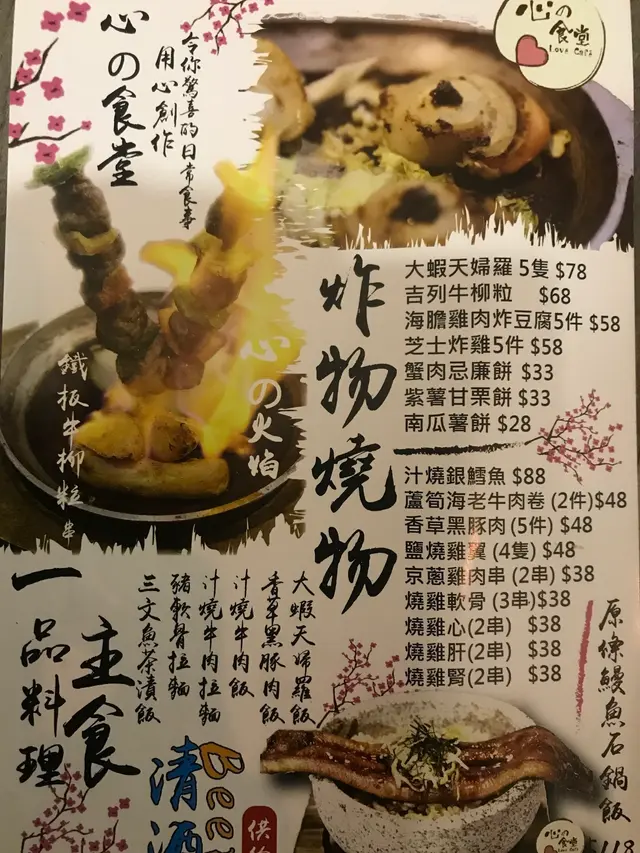 心の食堂
用心創作
令你驚喜的日常食事
心の食堂
Love Café
心の火焰
鐵板牛柳粒串
炸物燒物
大蝦天婦羅 5隻 $78
吉列牛柳粒 $68
海膽雞肉炸豆腐5件 $58
芝士炸雞5件 $58
蟹肉忌廉餅 $33
紫薯甘栗餅 $33
南瓜薯餅 $28
汁燒銀鱈魚 $88
蘆筍海老牛肉卷 (2件)$48
香草黑豚肉 (5件) $48
鹽燒雞翼 (4隻) $48
京蔥雞肉串 (2串) $38
燒雞軟骨 (3串)$38
燒雞心(2串) $38
燒雞肝(2串) $38
燒雞腎(2串) $38
一品料理
主食
大蝦天婦羅飯
香草黑豚肉飯
汁燒牛肉飯
汁燒牛肉拉麵
豬軟骨拉麵
三文魚茶漬飯
原條鰻魚石鍋飯
$118
Beer
清酒
供
心の食堂